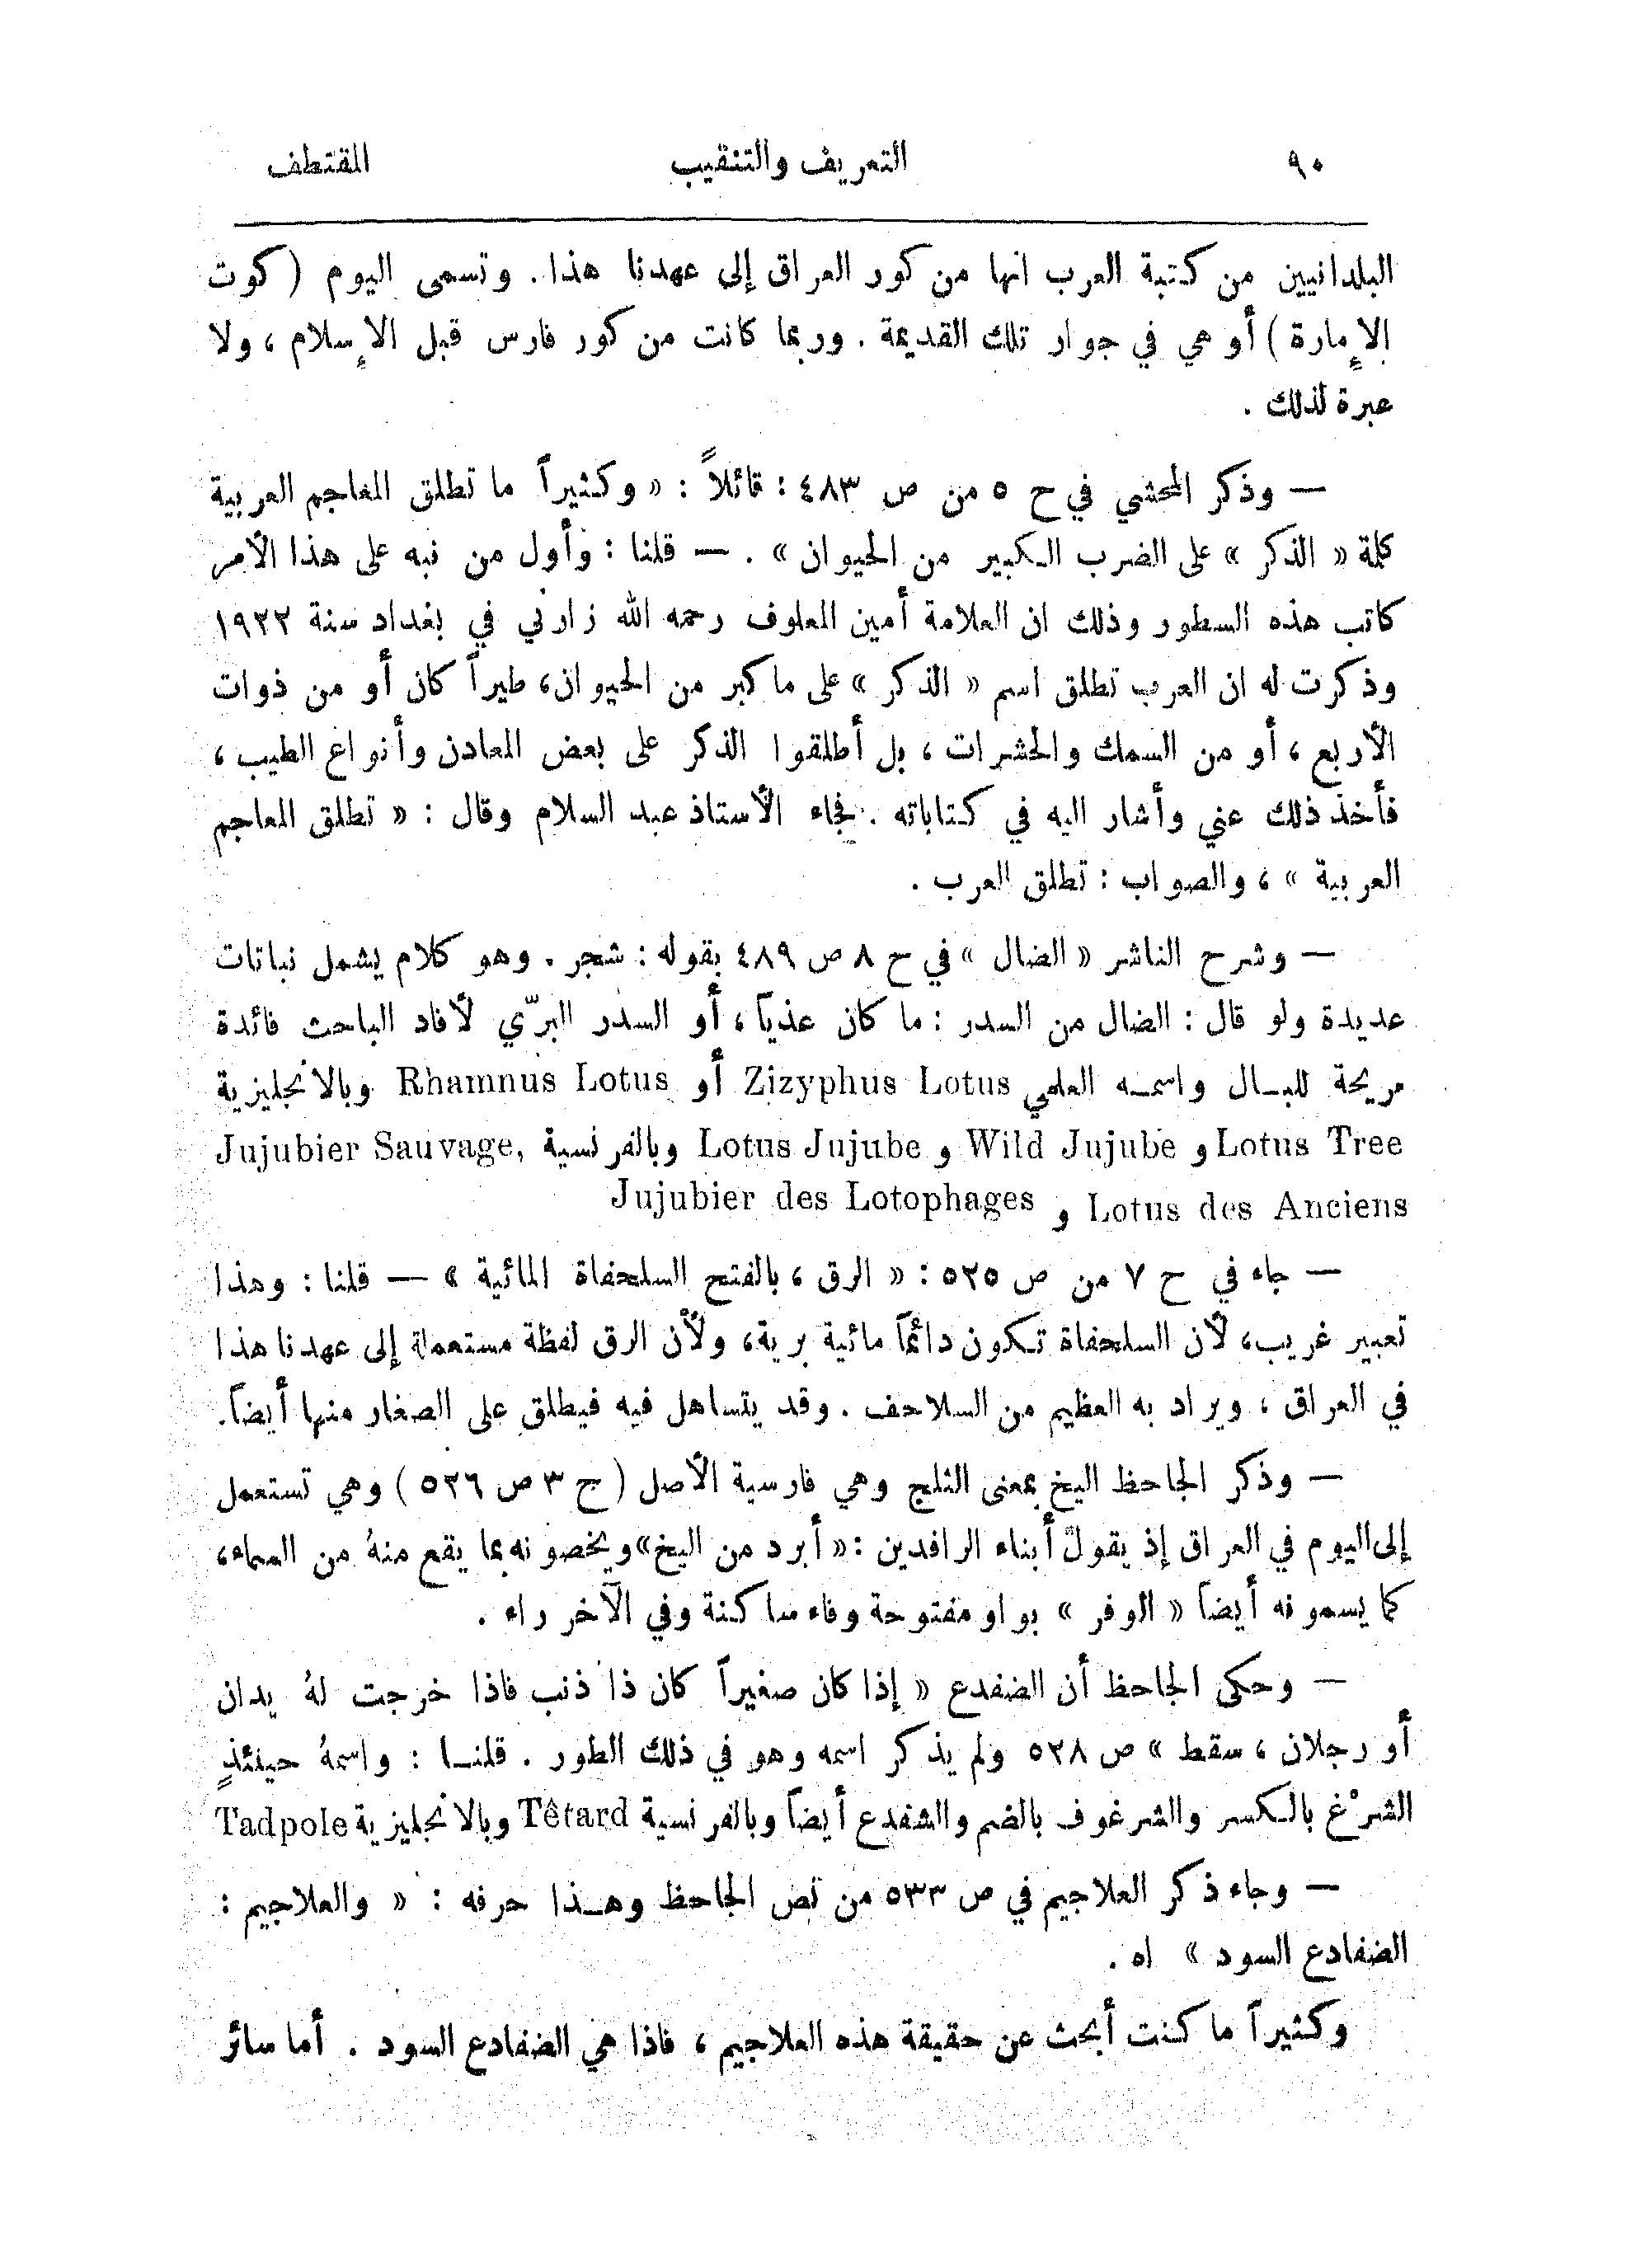 ٩٠ التعريف والتنقيب المقتطف
البلدانيين من كتبة العرب انها من كور العراق إلى عهدنا هذا. وتسمى اليوم (كوت
الإمارة) أو هي في جوار تلك القديمة. وربما كانت من كور فارس قبل الإسلام، ولا
عبرة لذلك.
— وذكر المحشي في ح ٥ من ص ٤٨٣: قائلاً: «وكثيراً ما تطلق المعاجم العربية
كلمة «الذكر» على الضرب الكبير من الحيوان». — قلنا: وأول من نبه على هذا الأمر
كاتب هذه السطور وذلك ان العلامة أمين المعلوف رحمه الله زارني في بغداد سنة ١٩٢٢
وذكرت له ان العرب تطلق اسم «الذكر» على ما كبر من الحيوان، طيراً كان أو من ذوات
الأربع، أو من السمك والحشرات، بل أطلقوا الذكر على بعض المعادن وأنواع الطيب،
فأخذ ذلك عني وأشار اليه في كتاباته. فجاء الأستاذ عبد السلام وقال: «تطلق المعاجم
العربية»، والصواب: تطلق العرب.
— وشرح الناشر «الضال» في ح ٨ ص ٤٨٩ بقوله: شجر. وهو كلام يشمل نباتات
عديدة ولو قال: الضال من السدر: ما كان عذياً، أو السدر البرّي لأفاد الباحث فائدة
مريحة للبـال واسمـه العلمي Zizyphus Lotus أو Rhamnus Lotus وبالانجليزية
Lotus Tree و Wild Jujube و Lotus Jujube وبالفرنسية Jujubier Sauvage,
Lotus des Anciens و Jujubier des Lotophages
— جاء في ح ٧ من ص ٥٢٥: «الرق، بالفتح السلحفاة المائية» — قلنا: وهذا
تعبير غريب، لأن السلحفاة تكون دائماً مائية برية، ولأن الرق لفظة مستعملة إلى عهدنا هذا
في العراق، ويراد به العظيم من السلاحف. وقد يتساهل فيه فيطلق على الصغار منها أيضاً.
— وذكر الجاحظ اليخ بمعنى الثلج وهي فارسية الأصل (ج ٣ ص ٥٢٦) وهي تستعمل
إلى اليوم في العراق إذ يقول أبناء الرافدين: «أبرد من اليخ» ويخصونه بما يقع منهُ من السماء،
كما يسمونه أيضاً «الوفر» بواو مفتوحة وفاء ساكنة وفي الآخر راء.
— وحكى الجاحظ أن الضفدع «إذا كان صغيراً كان ذا ذنب فاذا خرجت لهُ يدان
أو رجلان، سقط» ص ٥٢٨ ولم يذكر اسمه وهو في ذلك الطور. قلنـا: واسمهُ حينئذٍ
الشرْغ بالكسر والشرغوف بالضم والشفدع أيضاً وبالفرنسية Têtard وبالانجليزية Tadpole
— وجاء ذكر العلاجيم في ص ٥٣٣ من نص الجاحظ وهـذا حرفه: «والعلاجيم:
الضفادع السود» اه.
وكثيراً ما كنت أبحث عن حقيقة هذه العلاجيم، فاذا هي الضفادع السود. أما سائر